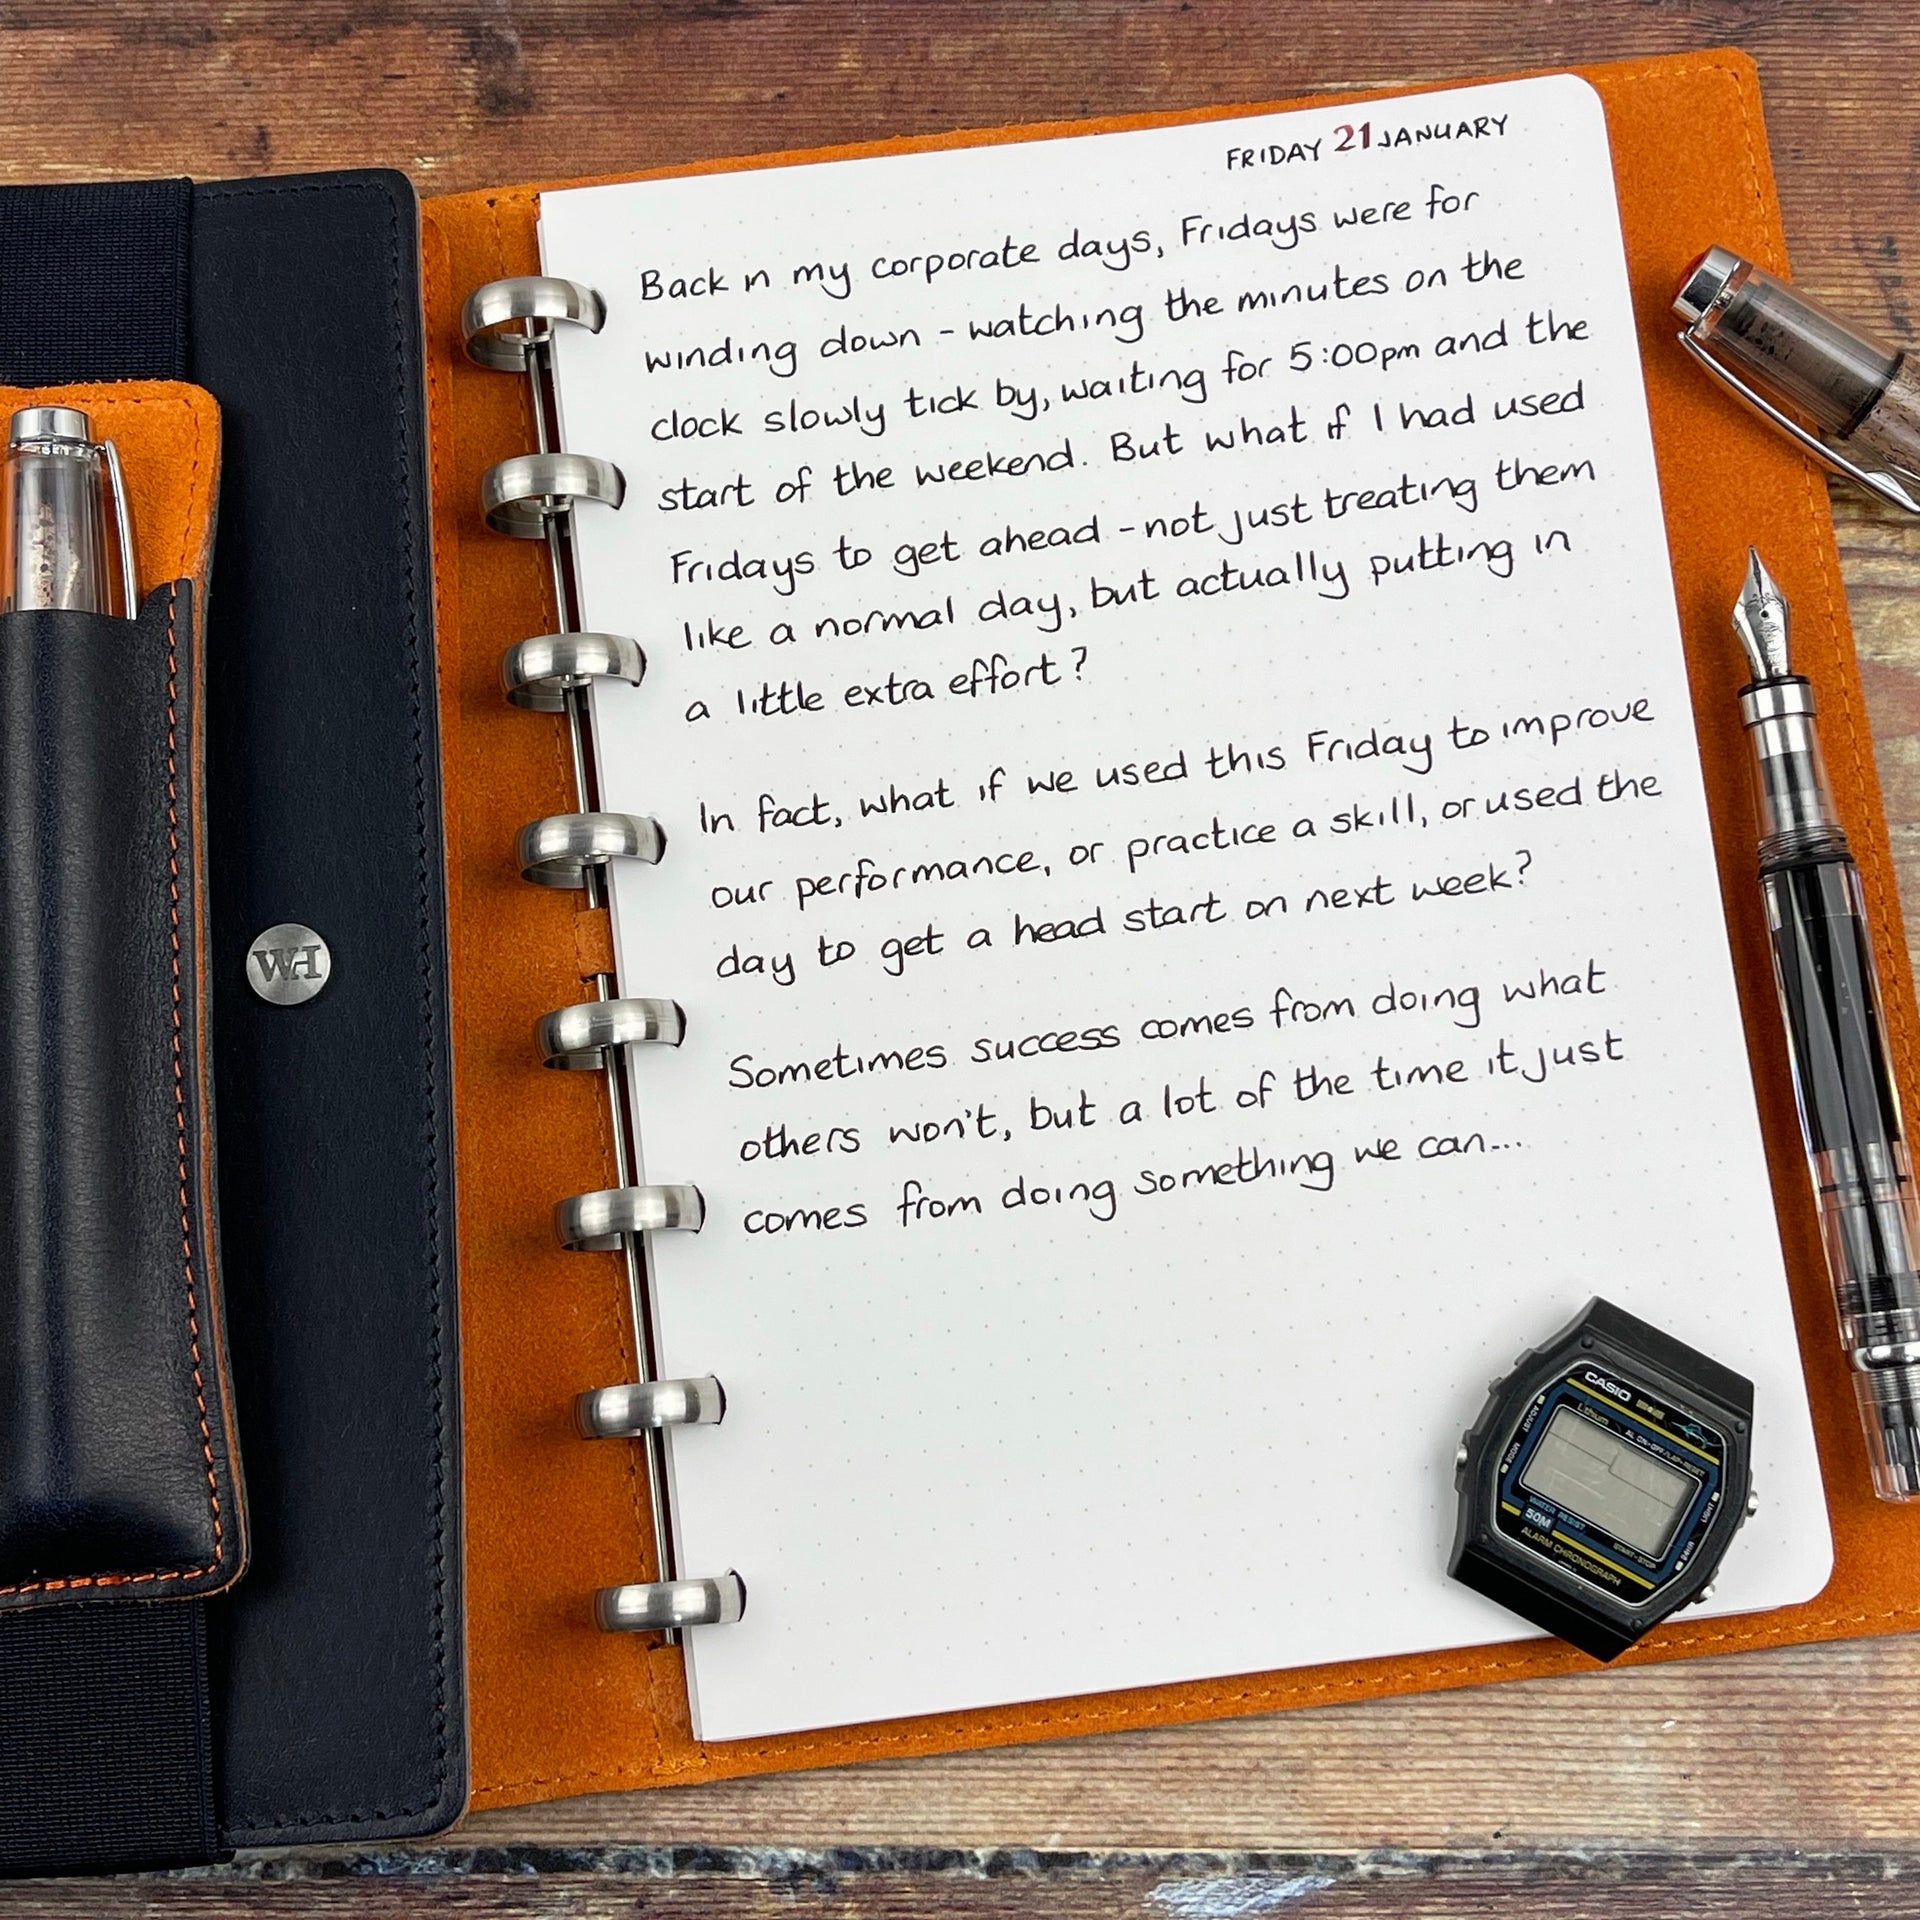 FRIDAY 21 JANUARY
Back in my corporate days, Fridays were for
winding down - watching the minutes on the
clock slowly tick by, waiting for 5:00pm and the
start of the weekend. But what if I had used
Fridays to get ahead - not just treating them
like a normal day, but actually putting in
a little extra effort?
In fact, what if we used this Friday to improve
our performance, or practice a skill, or used the
day to get a head start on next week?
Sometimes success comes from doing what
others won't, but a lot of the time it just
comes from doing something we can...
WH
CASIO
Lithium
AL ON-OFF/LAP-RESET
ADJUST
MODE
LIGHT
24HR
WATER RESIST
50M
START-STOP
ALARM CHRONOGRAPH